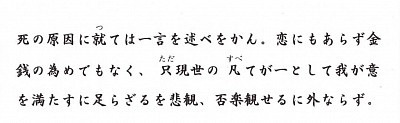 死の原因に就ては一言を述べをかん。恋にもあらず金
銭の為めでもなく、只現世の凡てが一として我が意
を満たすに足らざるを悲観、否楽観せるに外ならず。